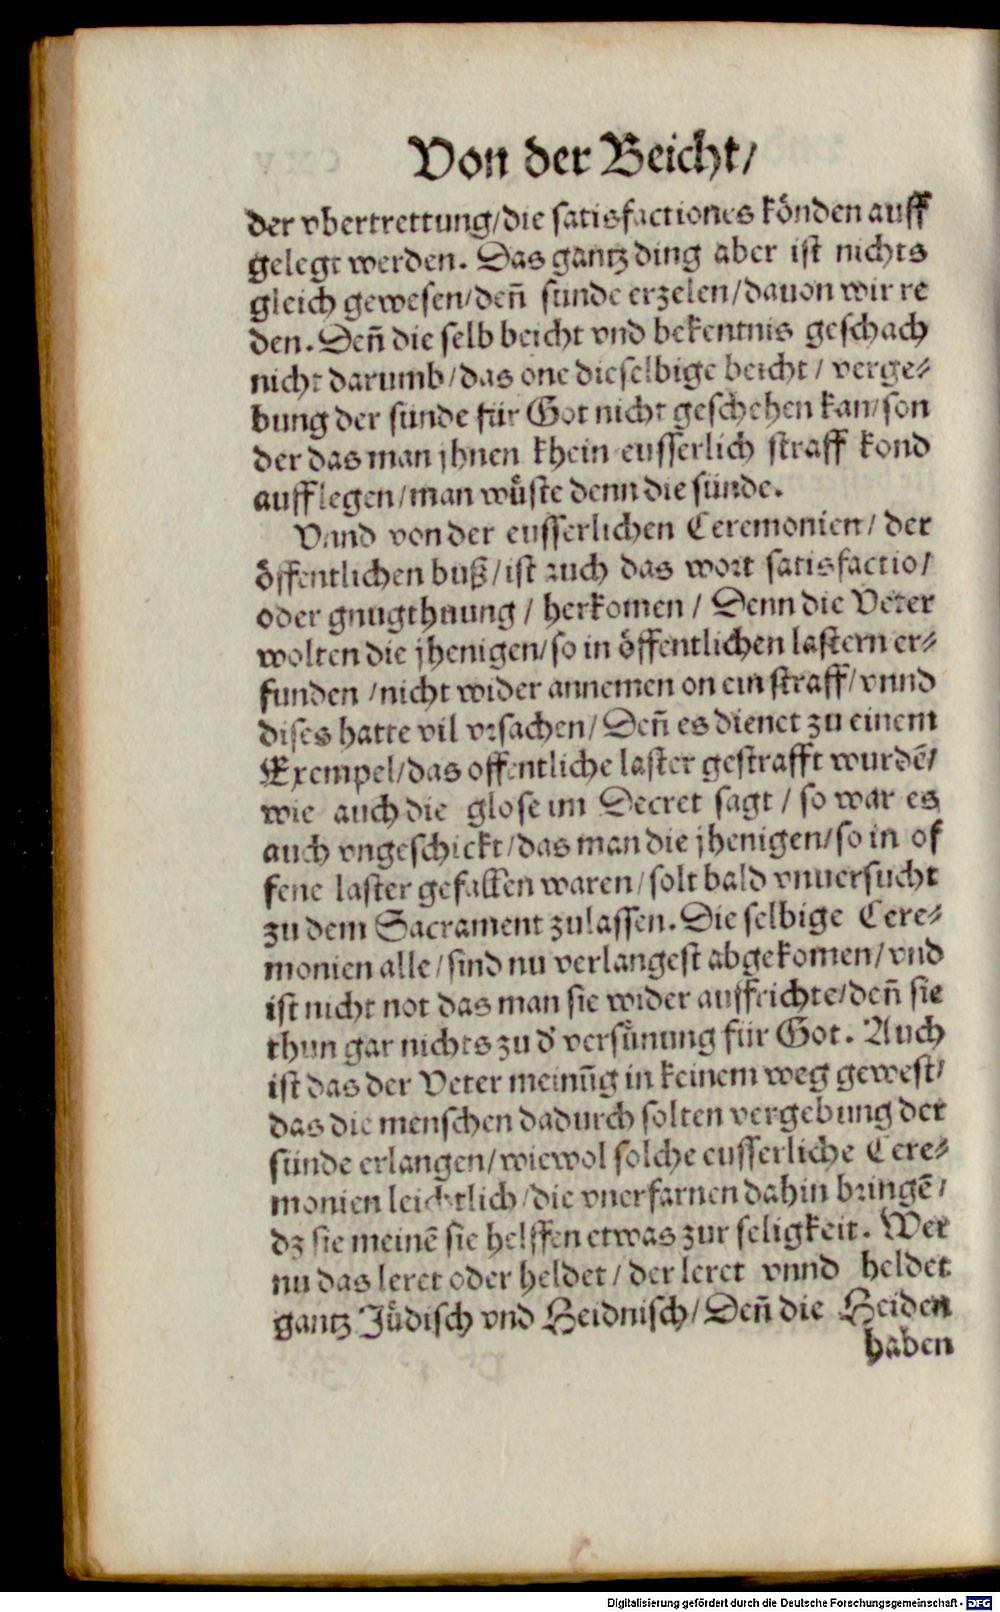 Von der Beicht/
der vbertrettung/die satisfactiones könden auff
gelegt werden. Das gantz ding aber ist nichts
gleich gewesen/den̄ sunde erzelen/dauon wir re
den. Den̄ die selb beicht vnd bekentnis geschach
nicht darumb/das one dieselbige beicht/ verge⸗
bung der sunde für Got nicht geschehen kan/son
der das man jhnen khein eusserlich straff kond
aufflegen/man wüste denn die sünde.
Vnnd von der eusserlichen Ceremonien/ der
öffentlichen buß/ist auch das wort satisfactio/
oder gnugthuung/ herkomen/ Denn die Veter
wolten die jhenigen/so in öffentlichen lastern er⸗
funden /nicht wider annemen on ein straff/vnnd
dises hatte vil vrsachen/ Den̄ es dienet zu einem
Exempel/das offentliche laster gestrafft wurdē/
wie auch die glose im Decret sagt/ so war es
auch vngeschickt/das man die jhenigen/so in of
fene laster gefallen waren/solt bald vnuersucht
zu dem Sacrament zulassen. Die selbige Cere⸗
monien alle/sind nu verlangest abgekomen/vnd
ist nicht not das man sie wider auffrichte/den̄ sie
thun gar nichts zu d' versünung für Got. Auch
ist das der Veter meinūg in keinem weg gewest/
das die menschen dadurch solten vergebung der
sünde erlangen/wiewol solche eusserliche Cere⸗
monien leichtlich/die vnerfarnen dahin bringē/
dz sie meinē sie helffen etwas zur seligkeit. Wer
nu das leret oder heldet/ der leret vnnd heldet
gantz Jüdisch vnd Heidnisch/Den̄ die Heiden
haben
Digitalisierung gefördert durch die Deutsche Forschungsgemeinschaft - DFG